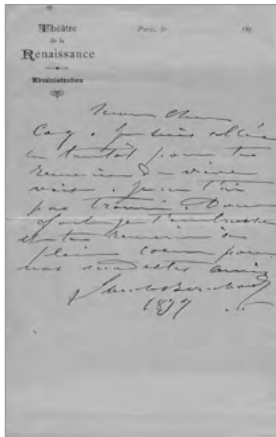 Théâtre
de la
Renaissance
Administration
Paris, le 189
Mon cher
Coq. Je suis allée
tantôt pour te
remercier de vive
voix. Je ne t'ai
pas trouvé. Donc
je t'embrasse
et te remercie à
plein cœur pour
nos modestes amis
Sarah Bernhardt
1897